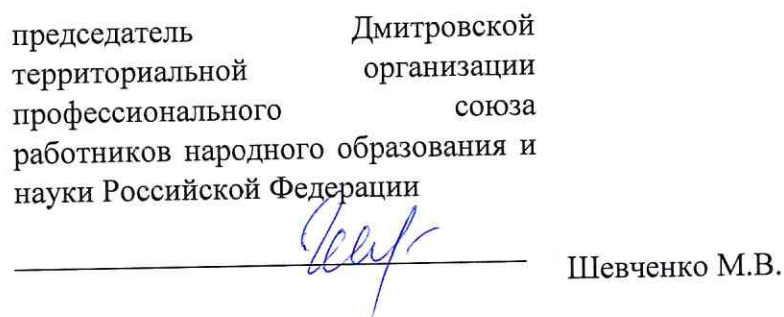 председатель Дмитровской
территориальной организации
профессионального союза
работников народного образования и
науки Российской Федерации
Шевченко М.В.